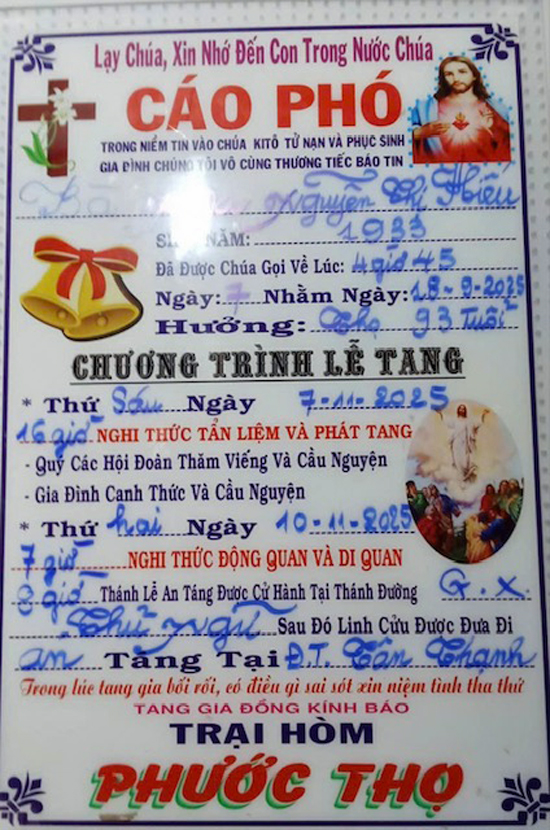 Lạy Chúa, Xin Nhớ Đến Con Trong Nước Chúa
CÁO PHÓ
TRONG NIỀM TIN VÀO CHÚA KITÔ TỬ NẠN VÀ PHỤC SINH
GIA ĐÌNH CHÚNG TÔI VÔ CÙNG THƯƠNG TIẾC BÁO TIN
Bà Nguyễn Thị Hiếu
SINH NĂM: 1933
Đã Được Chúa Gọi Về Lúc: 4 giờ 45
Ngày: 7 Nhằm Ngày: 18-9-2025
Hưởng: Thọ 93 Tuổi
CHƯƠNG TRÌNH LỄ TANG
* Thứ Sáu Ngày 7-11-2025
16 giờ NGHI THỨC TẨN LIỆM VÀ PHÁT TANG
- Quý Các Hội Đoàn Thăm Viếng Và Cầu Nguyện
- Gia Đình Canh Thức Và Cầu Nguyện
* Thứ hai Ngày 10-11-2025
7 giờ NGHI THỨC ĐỘNG QUAN VÀ DI QUAN
8 giờ Thánh Lễ An Táng Được Cử Hành Tại Thánh Đường G.X.
Thử Ngữ Sau Đó Linh Cửu Được Đưa Đi
an Táng Tại Đ.T. Tân Thạnh
Trong lúc tang gia bối rối, có điều gì sai sót xin niệm tình tha thứ
TANG GIA ĐỒNG KÍNH BÁO
TRẠI HÒM
PHƯỚC THỌ